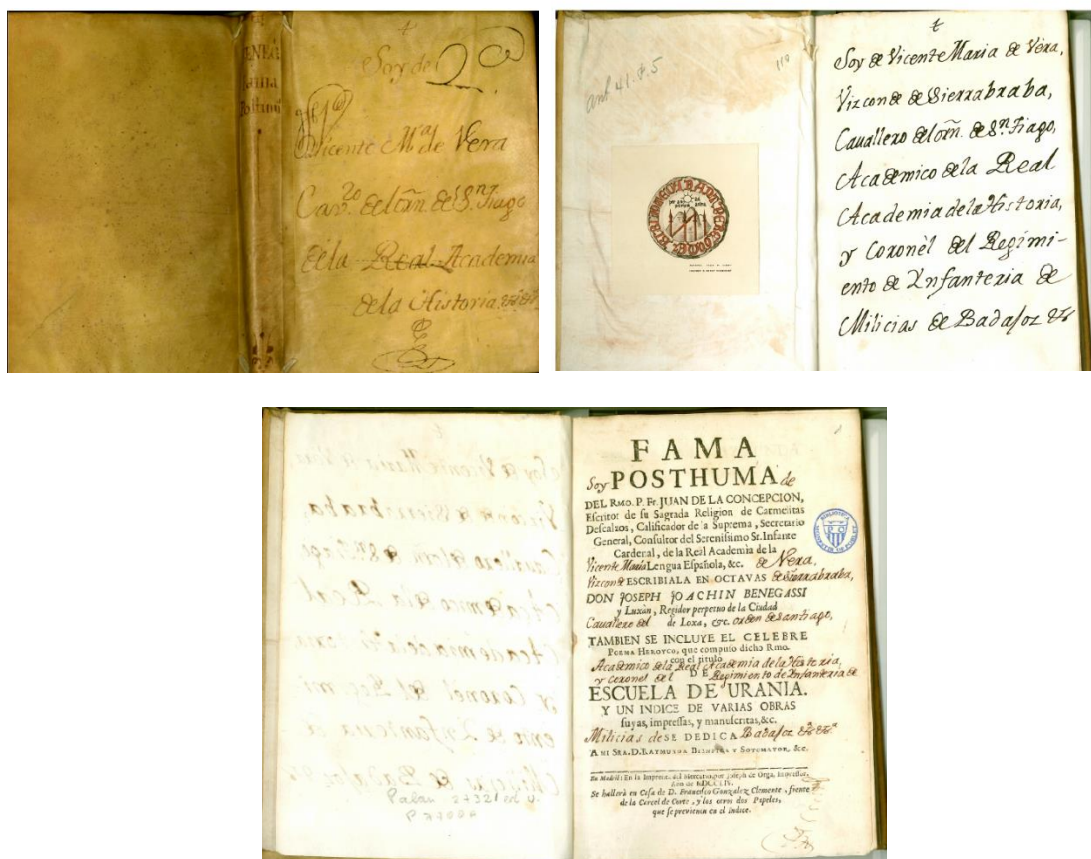 Soy de
Vicente M.ª de Vera
Cav.ro del orñ. de S.n Tiago
de la Real Academia
de la Historia. &.ª &.ª
ant 41.F.5
110
Soy de Vicente Maria de Vera,
Vizconde de Sierrabraba,
Cauallero del orñ. de S.n Tiago,
Academico de la Real
Academia de la Historia,
y Coronèl del Regimi-
ento de Ynfanteria de
Milicias de Badajoz &.ª
FAMA
Soy POSTHUMA de
DEL RMO. P. Fr. JUAN DE LA CONCEPCION,
Escritor de su Sagrada Religion de Carmelitas
Descalzos, Calificador de la Suprema, Secretario
General, Consultor del Serenissimo Sr. Infante
Cardenal, de la Real Academia de la
Vicente Maria Lengua Española, &c. de Vera,
Vizconde ESCRIBIALA EN OCTAVAS de Sierrabraba,
DON JOSEPH JOACHIN BENEGASSI
y Luxàn, Regidor perpetuo de la Ciudad
Cauallero del de Loxa, &c. orden de Santiago,
TAMBIEN SE INCLUYE EL CELEBRE
POEMA HEROYCO, que compuso dicho Rmo.
con el titulo
Academico de la Real Academia de la Historia,
y Coronel del DE Regimiento de Ynfanteria de
ESCUELA DE URANIA.
Y UN INDICE DE VARIAS OBRAS
suyas, impressas, y manuscritas, &c.
Milicias de SE DEDICA Badajoz &.ª &.ª
A MI SRA. D. RAYMUNDA Y SOTOMAYOR, &c.
En Madrid: En la Imprenta del Mercurio, por Joseph de Orga, Impressor,
Año de MDCCLIV.
Se hallarà en Casa de D. Francisco Gonzalez Clemente, frente
de la Carcel de Corte, y los otros dos Papeles,
que se previenen en el Indice.